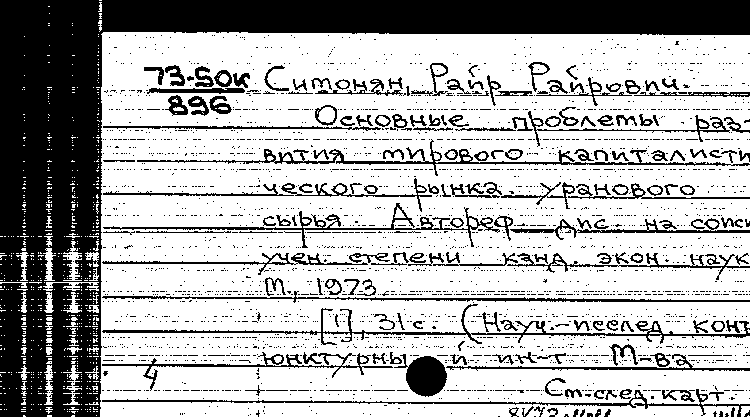 73-50к Симонян, Райр Райрович.
896
Основные проблемы раз-
вития мирового капиталисти
ческого рынка уранового
сырья. Автореф. дис. на соиск
учен. степени канд. экон. наук
М., 1973.
[1], 31 с. (Науч.-исслед. конъ
юнктурный ин-т М-ва
4
См. след. карт.